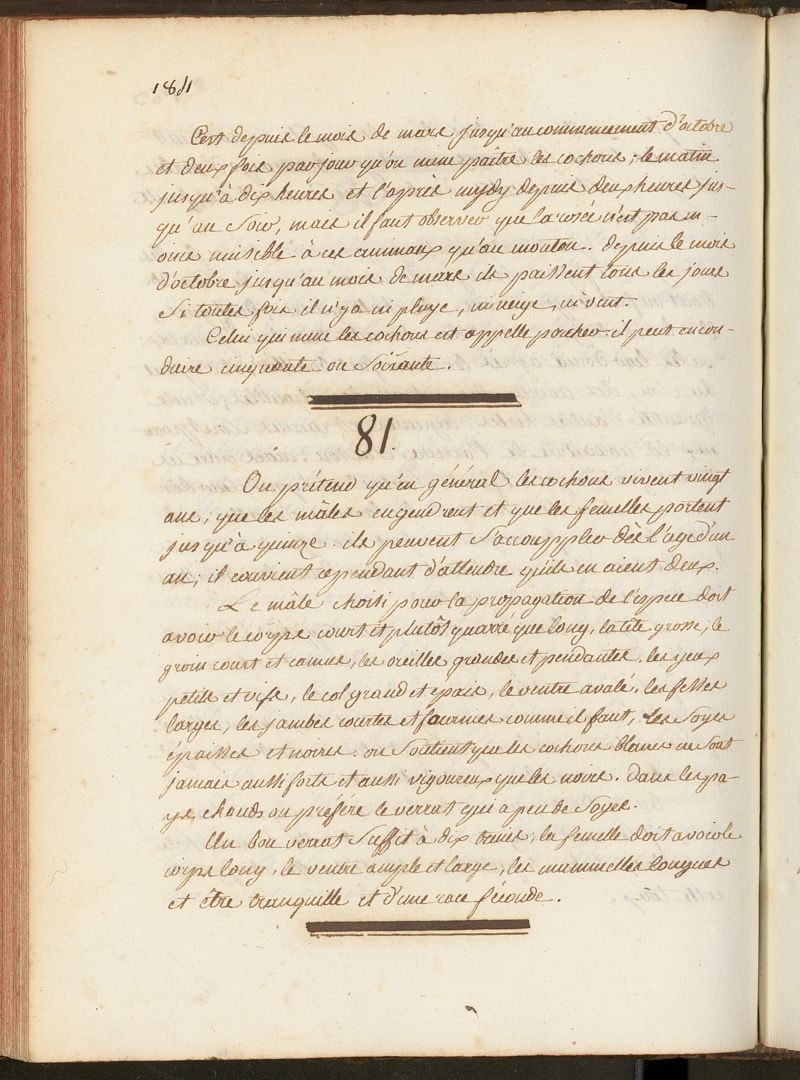 184
C'est depuis le mois de mars jusqu'au commencement d'octobre
et deux fois par jour qu'on mene paître les cochons; le matin
jusqu'à dix heures et l'après mydy depuis deux heures jus-
qu'au Soir, mais il faut observer que la rosée n'est pas m-
oins nuisible à ces animaux qu'au mouton. depuis le mois
d'octobre jusqu'au mois de mars ils paissent tous les jours
Si toutes fois il n'y a ni pluye, ni neige, ni vent.
Celui qui mene les cochons est appelle porcher. il peut en con-
duire cinquante ou Soixante.
81.
On prétend qu'en général les cochons vivent vingt
ans; que les mâles engendrent et que les femelles portent
jusqu'à quinze. ils peuvent S'accouppler dès l'age d'un
an; il convient cependant d'attendre qu'ils en aient deux.
Le mâle choisi pour la propagation de l'espece doit
avoir le corps court et plutôt quarré que long, la tête grosse, le
groin court et camus, les oreilles grandes et pendantes, les yeux
petits et vifs, le col grand et epais, le ventre avalé, les fesses
larges, les jambes courtes et fournies comme il faut, les Soyes
épaisses et noires. on Soutient que les cochons blancs ne Sont
jamais aussi forts et aussi vigoureux que les noirs. Dans les pa-
ys chauds on préfére le verrat qui a peu de Soyes.
Un bon verrat Suffit à dix truies, la femelle doit avoir le
corps long, le ventre ample et large, les mammelles longues
et être tranquille et d'une race féconde.